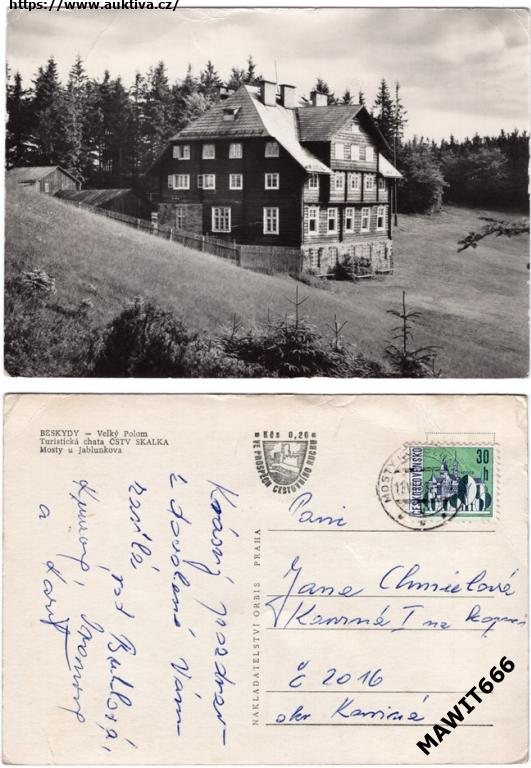 https://www.auktiva.cz/
BESKYDY – Velký Polom
Turistická chata ČSTV SKALKA
Mosty u Jablunkova
Kčs 0,20
VE PROSPĚCH CESTOVNÍHO RUCHU
MOSTY
ČESKOSLOVENSKO
30
h
NAKLADATELSTVÍ ORBIS PRAHA
Krásný pozdrav
z dovolené Vám
rod
a
Paní
Jana Chmielová
Karviná I na kopci
č 2016
okr Karviná
MAWIT666